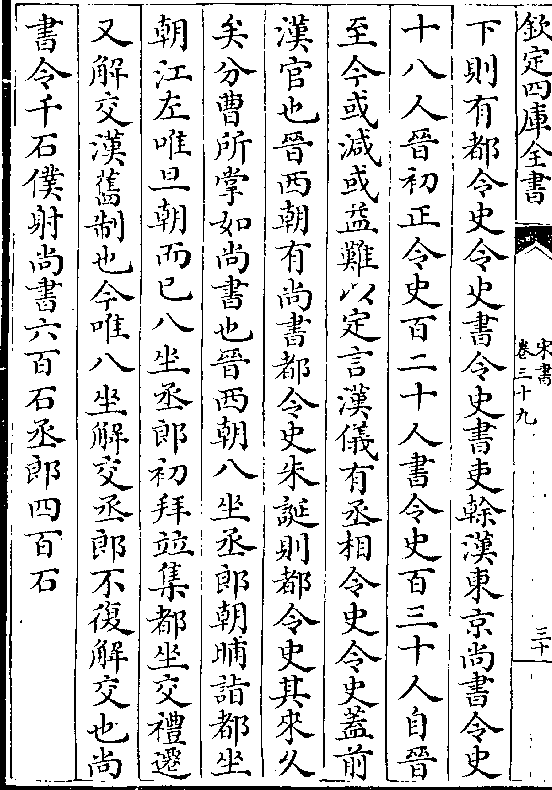 欽定四庫全書
宋書
卷三十九
三十
下則有都令史令史書令史書吏幹漢東京尚書令史
十八人晉初正令史百二十人書令史百三十人自晉
至今或減或益難以定言漢儀有丞相令史令史蓋前
漢官也晉西朝有尚書都令史朱誕則都令史其來久
矣分曹所掌如尚書也晉西朝八坐丞郎朝晡詣都坐
朝江左唯旦朝而已八坐丞郎初拜竝集都坐交禮遷
又解交漢舊制也今唯八坐解交丞郎不復解交也尚
書令千石僕射尚書六百石丞郎四百石